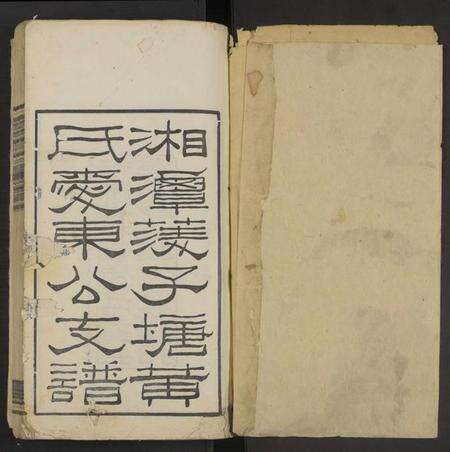 湘潭蒺子塘黄
氏愛東公支譜